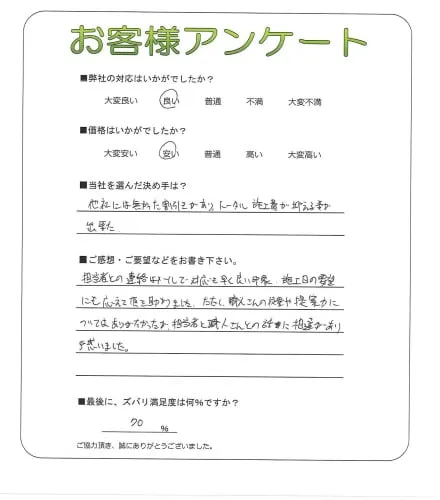 お客様アンケート
■弊社の対応はいかがでしたか?
大変良い 良い 普通 不満 大変不満
■価格はいかがでしたか?
大変安い 安い 普通 高い 大変高い
■当社を選んだ決め手は?
他社には無かった割引きがあり、トータル施工費が抑える事が
出来た
■ご感想・ご要望などをお書き下さい。
担当者との連絡はメールで対応も早く良い印象、施工日の要望
にも応えて頂き助かりました。ただし、職人さんの技術や提案力に
ついてはありがたかったが、担当者と職人さんとの話に相違があり
戸惑いました。
■最後に、ズバリ満足度は何%ですか?
70 %
ご協力頂き、誠にありがとうございました。